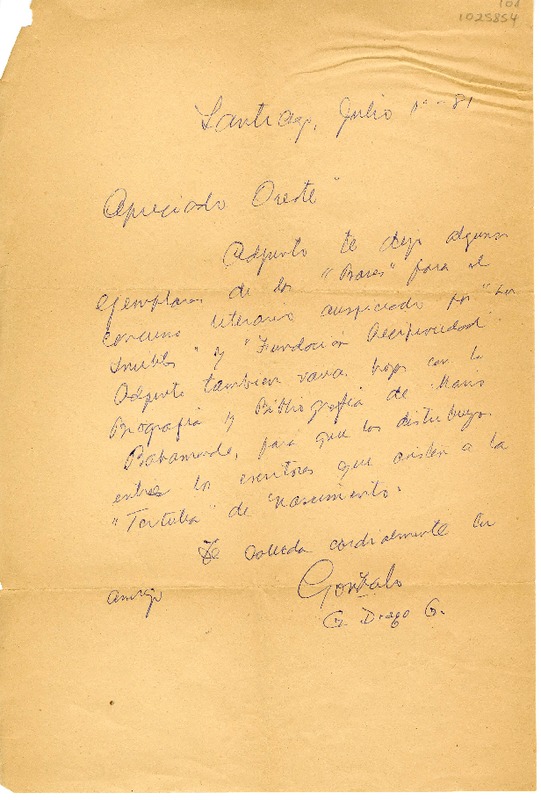 101
1025854
Santiago, Julio 1º - 81
Apreciado Oreste"
Adjunto te dejo algunos
ejemplares de las "Bases" para el
concurso literario auspiciado por "La
" y "Fundación Reciprocidad"
Adjunto tambien varias hojas con la
Biografía y Bibliografía de Mario
Bahamonde, para que las distribuyas
entre los escritores que asisten a la
"Tertulia" de Nascimento.
Te saluda cordialmente tu
amigo
Gonzalo
G. Drago G.